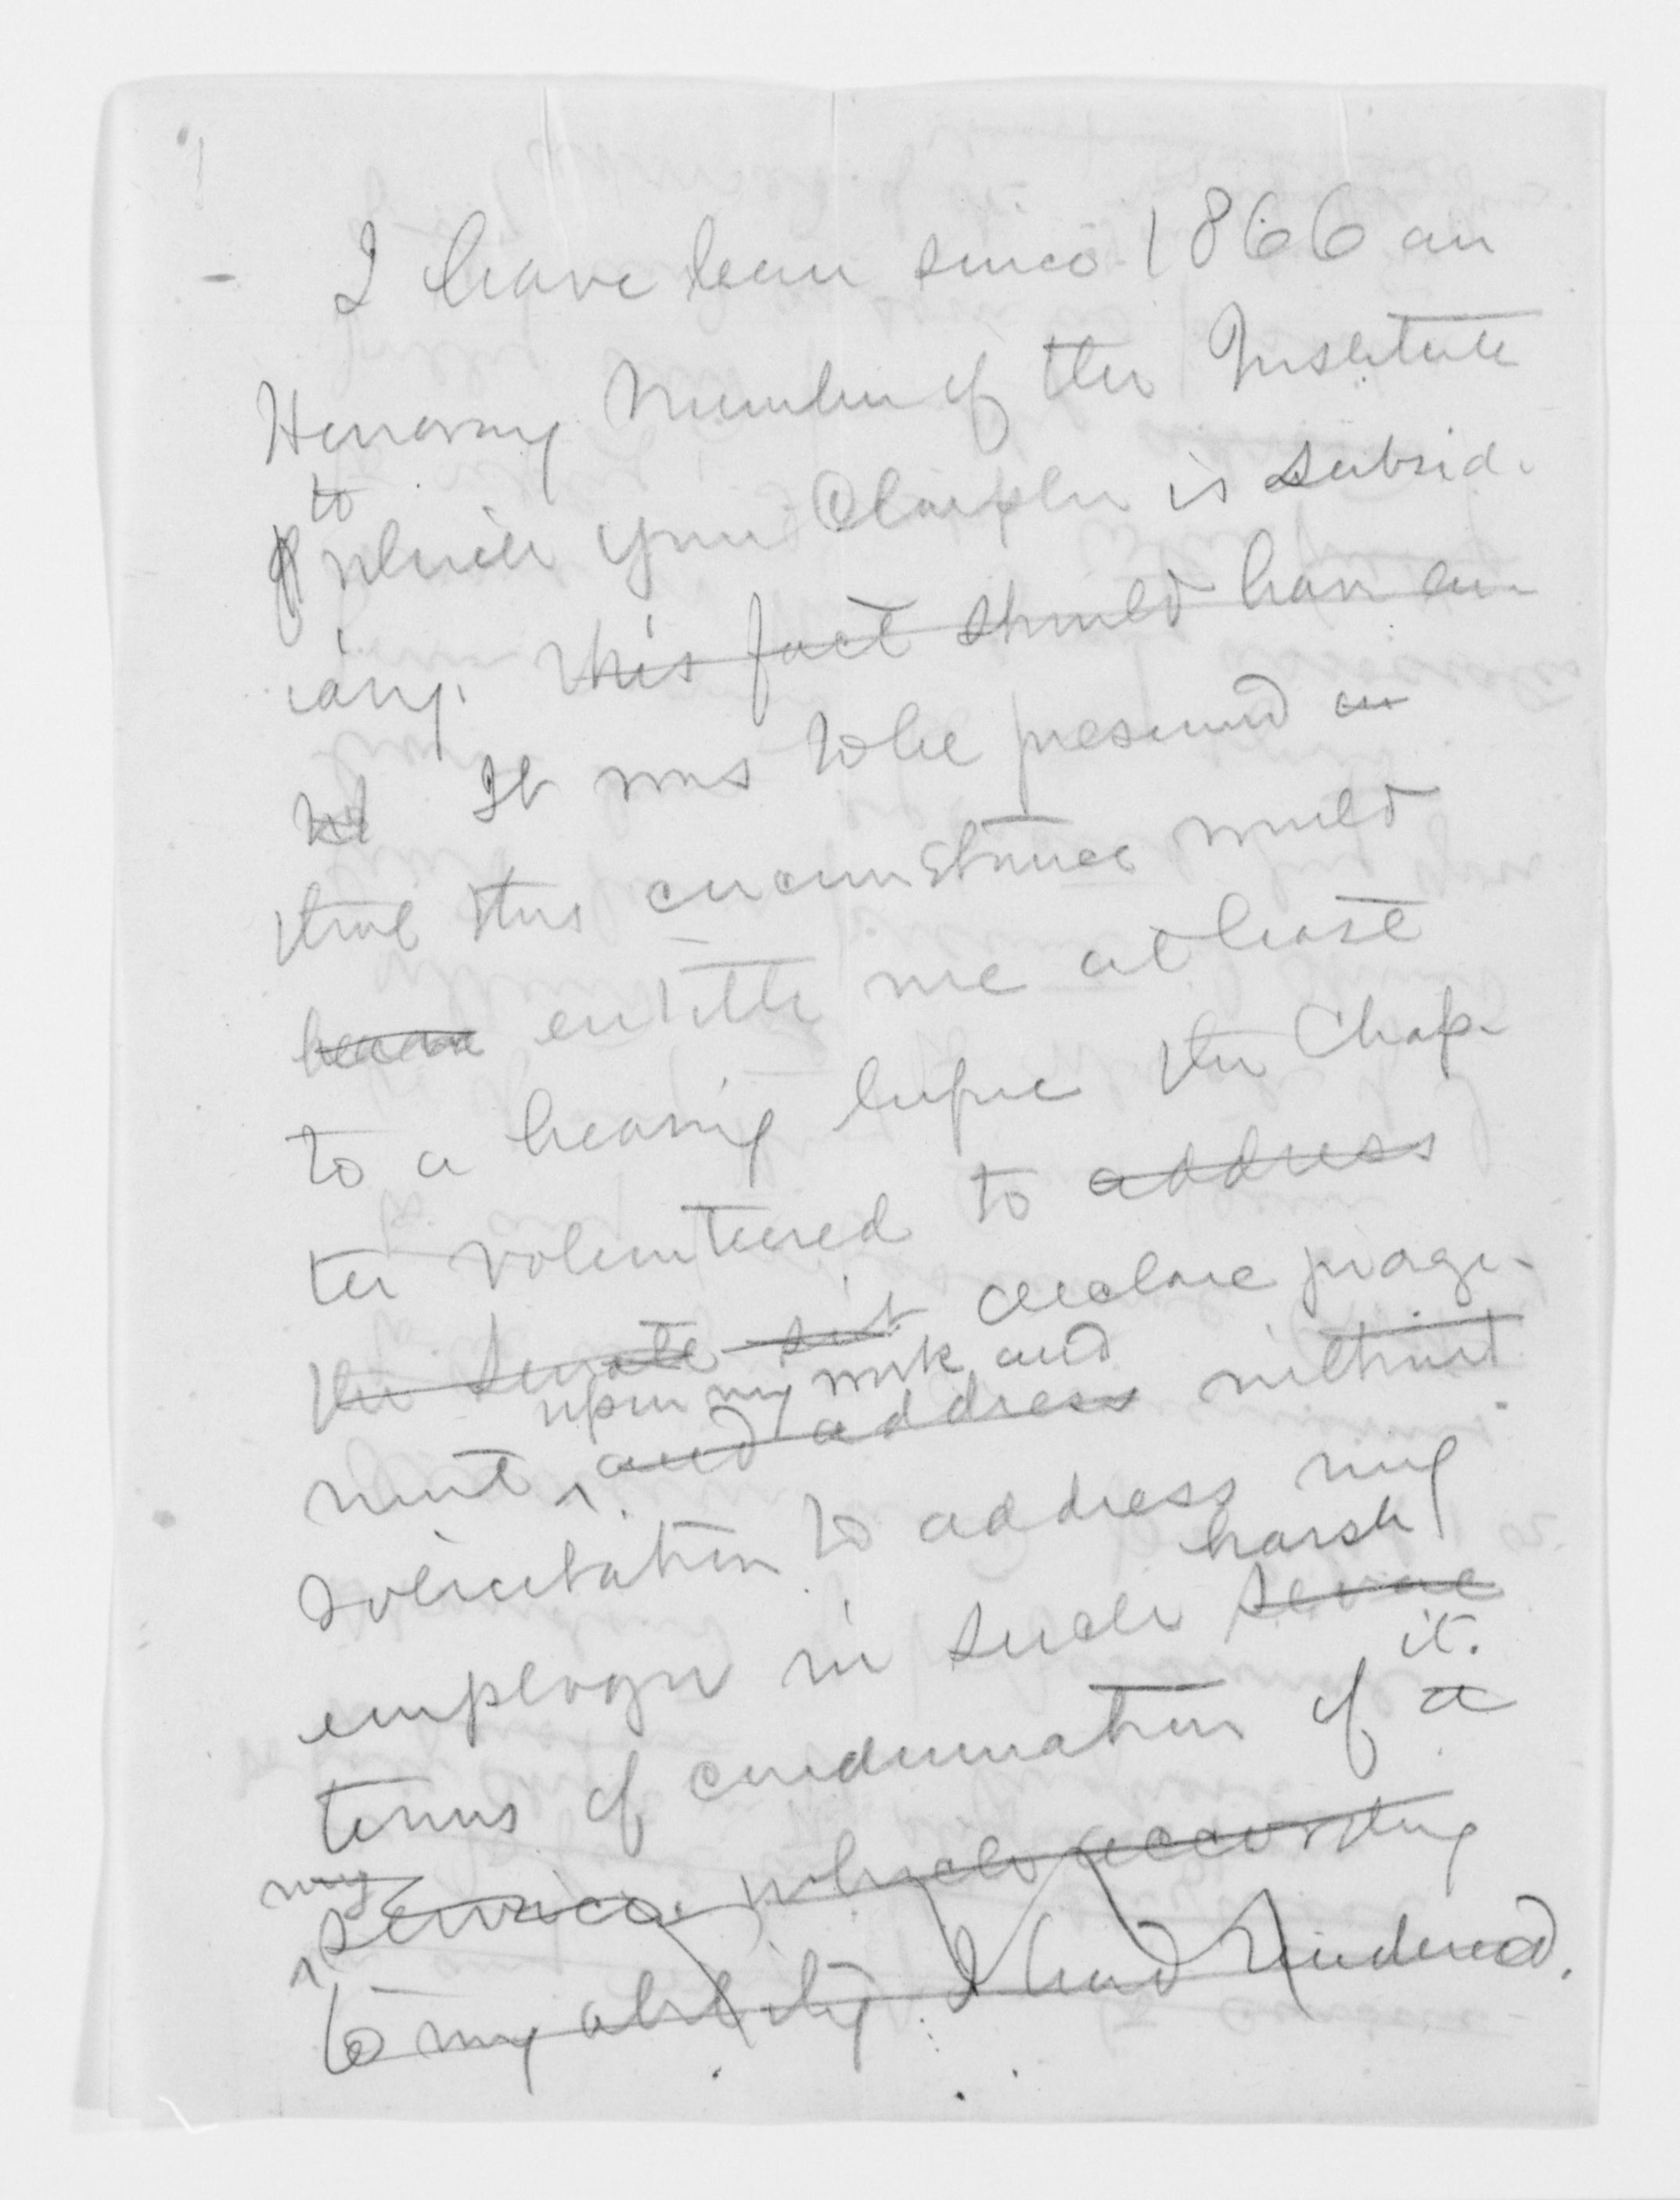 I have been since 1866 an
Honorary Member of the Institute
to
of which your Chapter is subsid-
iary. This fact should have en-
It was to be presumed an
that this circumstance would
entitle me at least
to a hearing before the Chap-
ter volunteered to address
the Senate declare judge-
upon my work and
ment and address without
solicitation to address my
harsh
employer in such severe
it.
terms of condemnation of a
my
service which according
to my ability I had rendered.